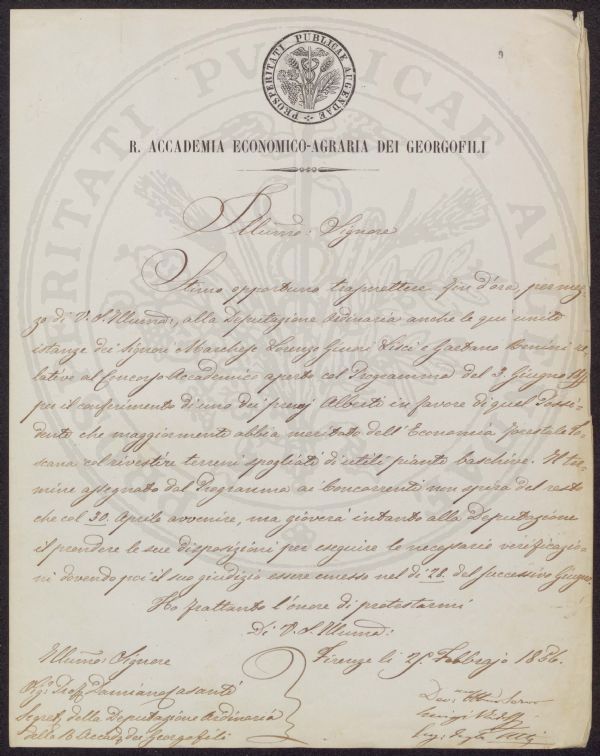 PROSPERITATI PUBLICAE AUGENDAE
R. ACCADEMIA ECONOMICO-AGRARIA DEI GEORGOFILI
Illumo: Signore
Stimo opportuno trasmettere fin d'ora, per mez-
zo di V. S. Illuma:, alla Deputazione Ordinaria anche le qui unite
istanze dei Signori Marchese Lorenzo Ginori Lisci e Gaetano re-
lative al Concorso Accademico aperto col Programma del 3 Giugno
per il conferimento di uno dei premj Alberti in favore di quel Possi-
dente che maggiormente abbia meritato dell'Economia forestale To-
scana col rivestire terreni spogliati di utili piante boschive. Il ter-
mine assegnato dal Programma ai Concorrenti non spira del resto
che col 30. Aprile avvenire, ma gioverà intanto alla Deputazione
il prendere le sue disposizioni per eseguire le necessarie verificazio-
ni dovendo poi il suo giudizio essere emesso nel dì 28. del successivo Giugno.
Ho frattanto l'onore di protestarmi
Di V. S. Illuma:
Firenze li Febbrajo
Illumo: Signore
Sigr. Proff. Damiano Casanti
Segret. della Deputazione Ordinaria
della R. Accad. dei Georgofili
Dev: Servo
Luigi